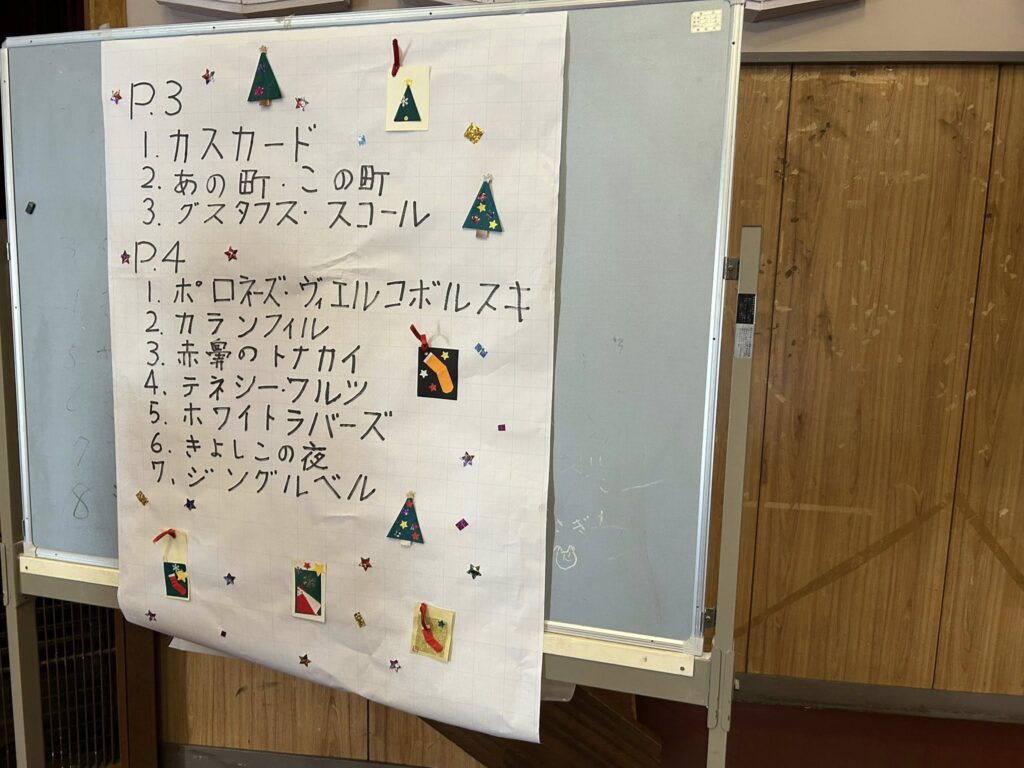 P.3
1. カスカード
2. あの町・この町
3. グスタフス・スコール
P.4
1. ポロネーズ・ヴィエルコボルスキ
2. カランフィル
3. 赤鼻のトナカイ
4. テネシー・ワルツ
5. ホワイトラバーズ
6. きよしこの夜
7. ジングルベル
8